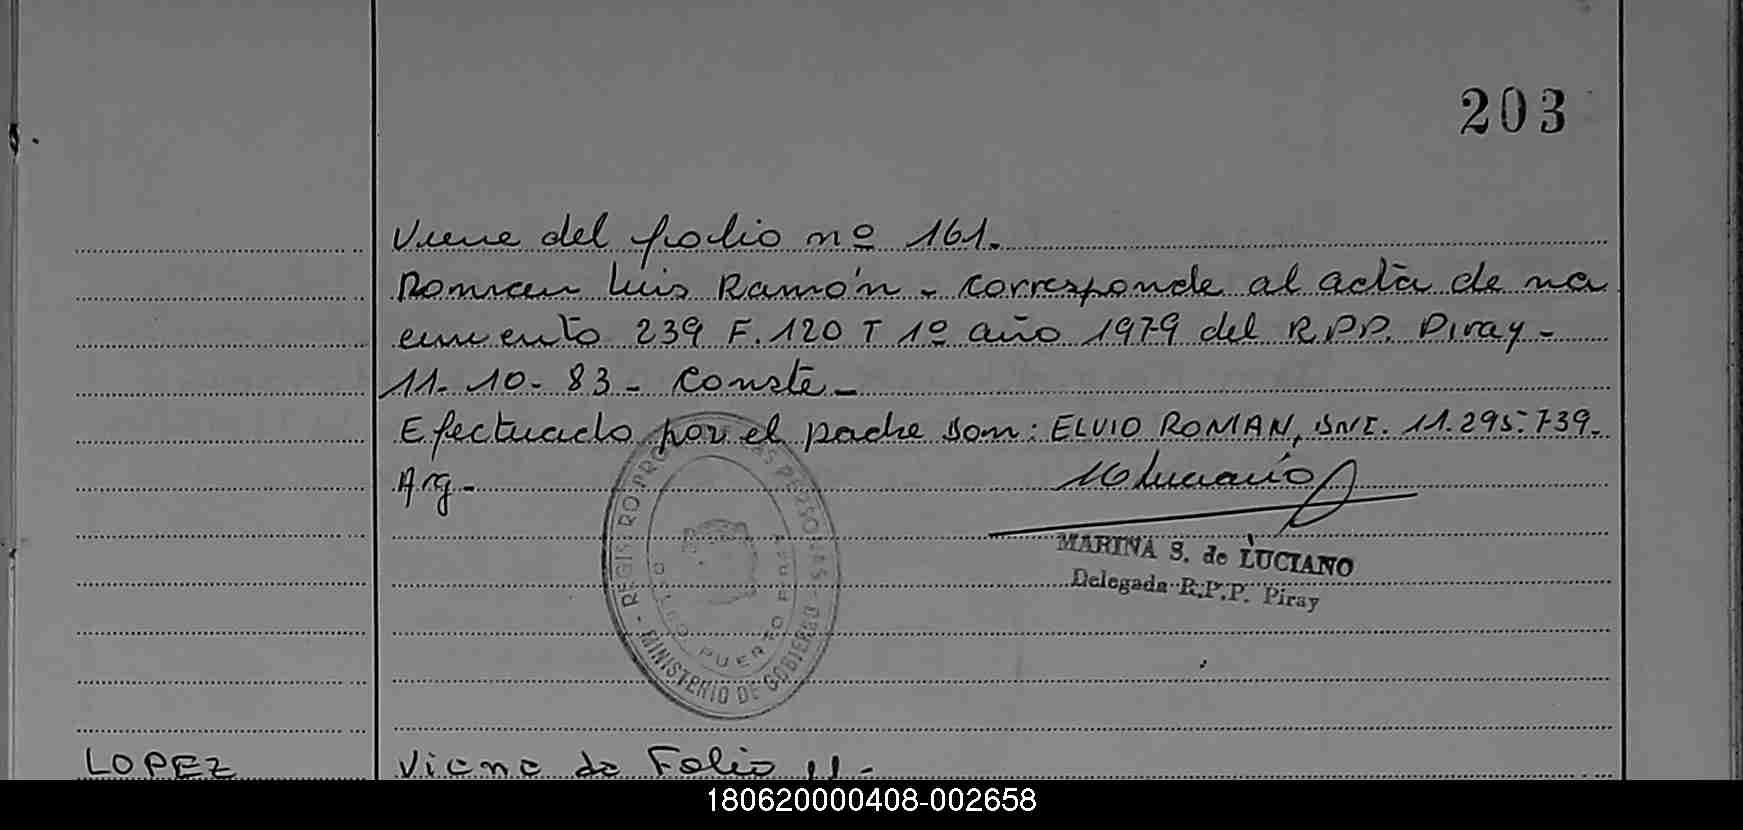 203
Viene del folio nº 161.
Roman Luis Ramón - corresponde al acta de na
cimiento 239 F. 120 T 1º año 1979 del R.P.P. Piray -
11-10-83 - Conste -
Efectuado por el padre Don: ELVIO ROMAN, DNI. 11.295.739.
Arg -
MARINA S. de LUCIANO
Delegada R.P.P. Piray
REGISTRO PROVINCIAL DE LAS PERSONAS - MINISTERIO DE GOBIERNO
PUERTO
LOPEZ
Viene de Folio 11 -
180620000408-002658